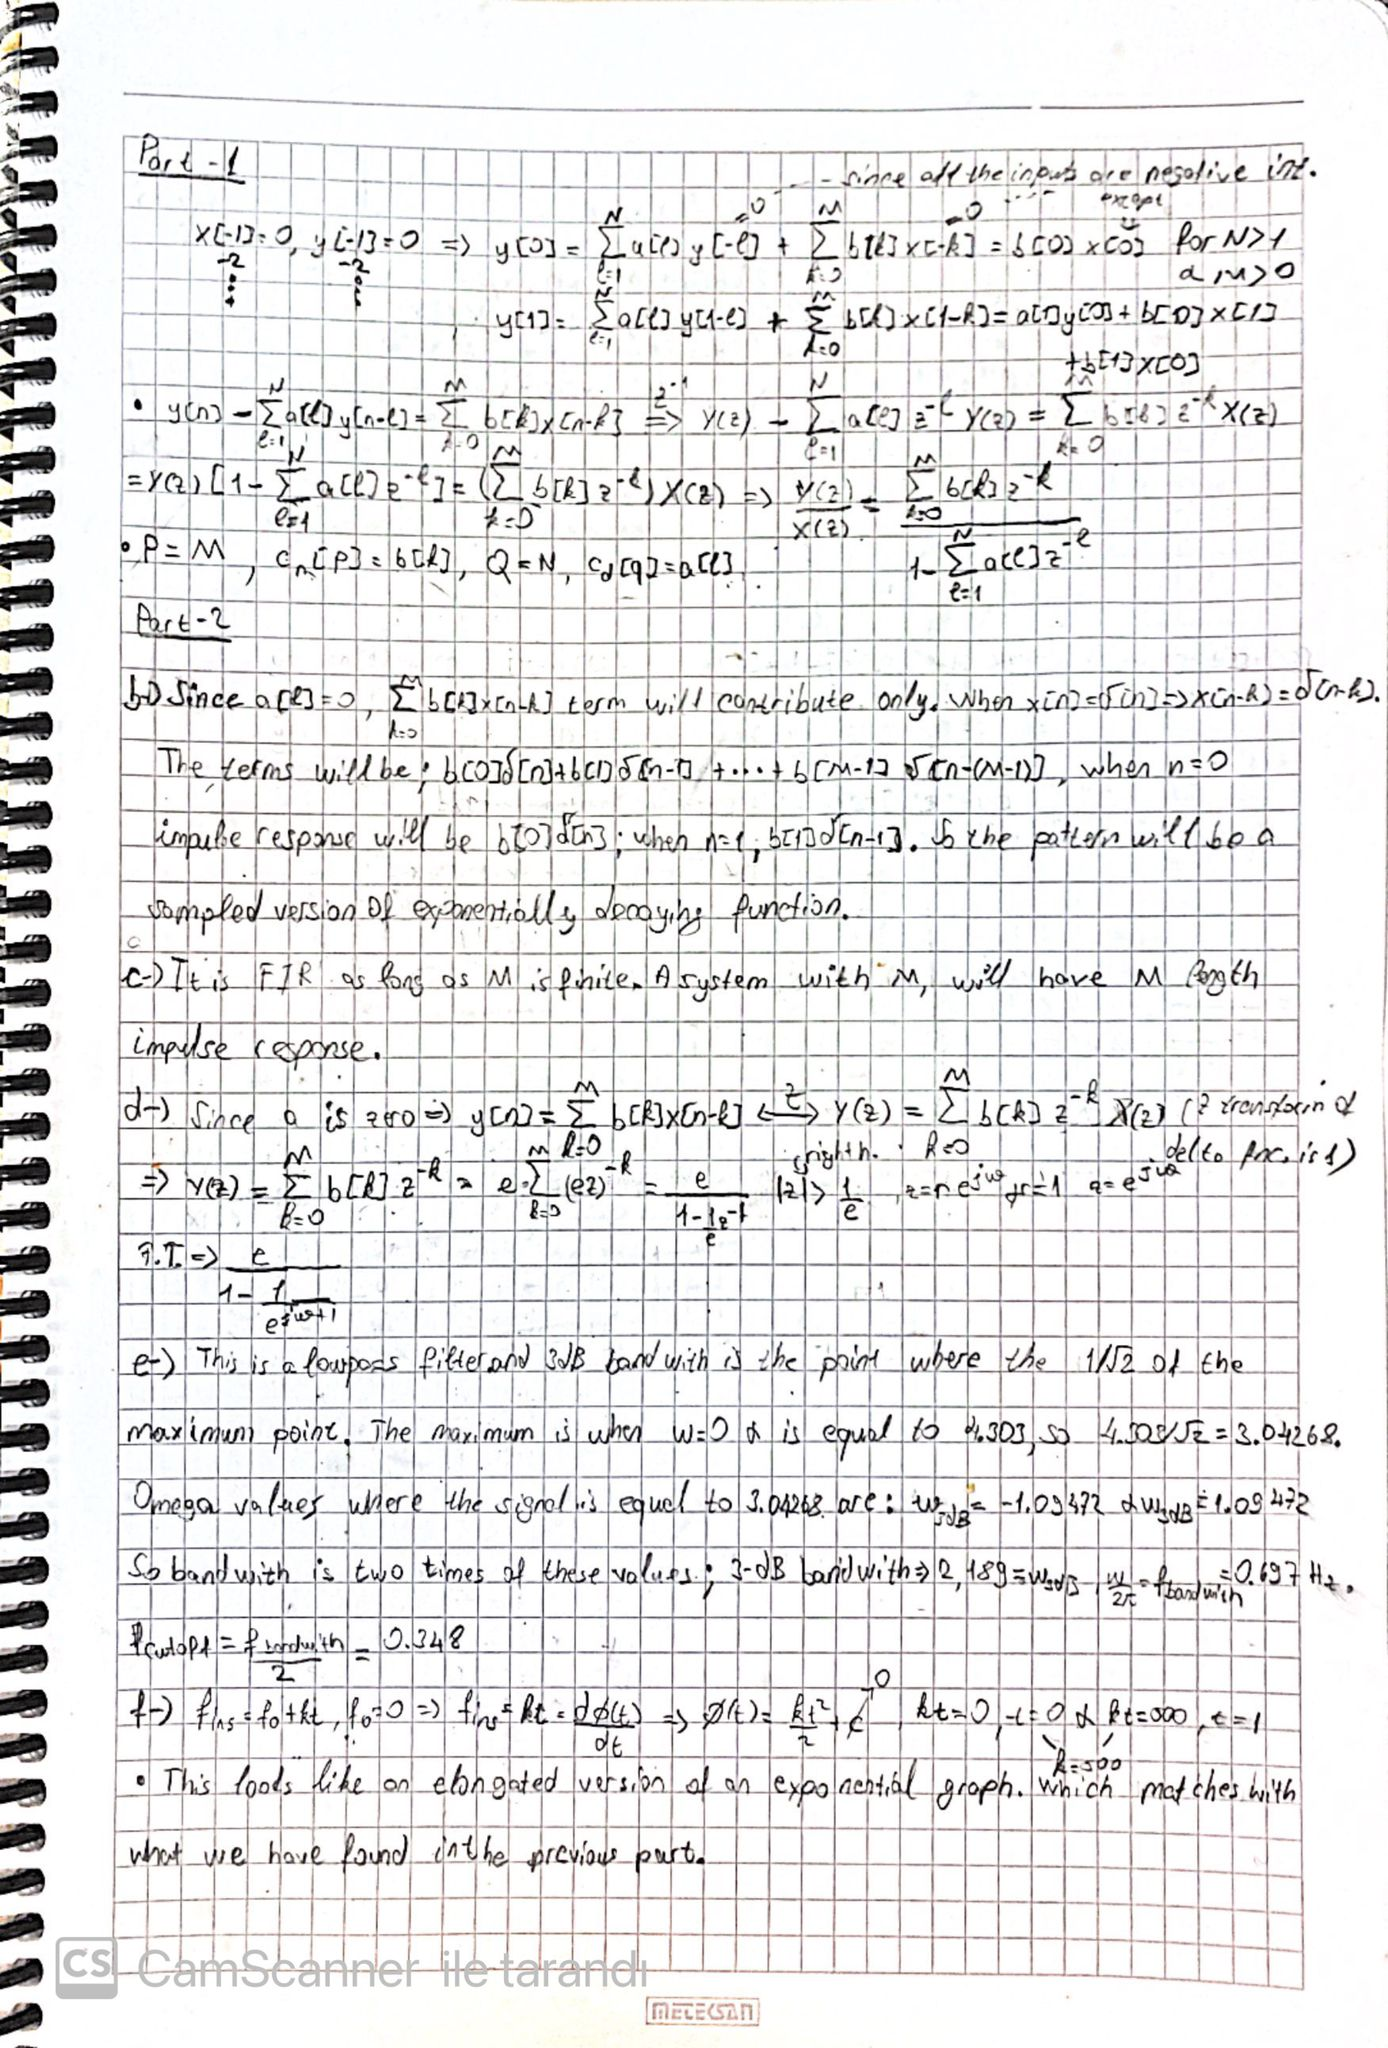 Part-1
- since all the inputs are negative int.
except
x[-1]=0, y[-1]=0 => y[0] = Σ_{l=1}^{N} a[l] y[-l] + Σ_{k=0}^{M} b[k] x[-k] = b[0] x[0] for N>1
-2 -2 & M>0
y[1] = Σ_{l=1}^{N} a[l] y[1-l] + Σ_{k=0}^{M} b[k] x[1-k] = a[1] y[0] + b[0] x[1]
+b[1] x[0]
• y[n] - Σ_{l=1}^{N} a[l] y[n-l] = Σ_{k=0}^{M} b[k] x[n-k] =>^{z^{-1}} Y(z) - Σ_{l=1}^{N} a[l] z^{-l} Y(z) = Σ_{k=0}^{M} b[k] z^{-k} X(z)
= Y(z) [1 - Σ_{l=1}^{N} a[l] z^{-l}] = (Σ_{k=0}^{M} b[k] z^{-k}) X(z) => Y(z)/X(z) = Σ_{k=0}^{M} b[k] z^{-k} / 1 - Σ_{l=1}^{N} a[l] z^{-l}
• P=M, c_n[p] = b[k], Q=N, c_d[q] = a[l]
Part-2
b-) Since a[l]=0, Σ_{k=0}^{M} b[k] x[n-k] term will contribute only. When x[n]=δ[n] => x[n-k] = δ[n-k].
The terms will be; b[0]δ[n]+b[1]δ[n-1]+...+b[M-1] δ[n-(M-1)], when n=0
impulse response will be b[0]δ[n]; when n=1, b[1]δ[n-1]. So the pattern will be a
sampled version of exponentially decaying function.
c-) It is FIR as long as M is finite. A system with M, will have M length
impulse response.
d-) Since a is zero => y[n] = Σ_{k=0}^{M} b[k] x[n-k] <-^{z}-> Y(z) = Σ_{k=0}^{M} b[k] z^{-k} X(z) (z transform of
delta fnc. is 1)
=> Y(z) = Σ_{k=0}^{M} b[k] z^{-k} = e Σ_{k=0}^{M} (ez)^{-k} = e / 1 - 1/e z^{-1} righth. |z| > 1/e, z=re^{jw}, r=1 z=e^{jw}
F.T. => e / 1 - 1/e^{jw+1}
e-) This is a lowpass filter and 3dB bandwith is the point where the 1/√2 of the
maximum point. The maximum is when w=0 & is equal to 4.303, so 4.303/√2 = 3.04268.
Omega values where the signal is equal to 3.04268 are: w_{3dB} = -1.09472 & w_{3dB} = 1.09472
So bandwith is two times of these values; 3-dB bandwith => 2,189 = w_{3dB}, w/2π = f_{bandwith} = 0.697 Hz.
f_{cutoff} = f_{bandwith}/2 = 0.348
f-) f_{ins} = f_0+kt, f_0=0 => f_{ins} = kt = dφ(t)/dt => φ(t) = kt²/2 + c 0 kt=0, t=0 & kt=500, t=1
k=500
• This looks like an elongated version of an exponential graph. Which matches with
what we have found in the previous part.
CS CamScanner ile tarandı
METEKSAN